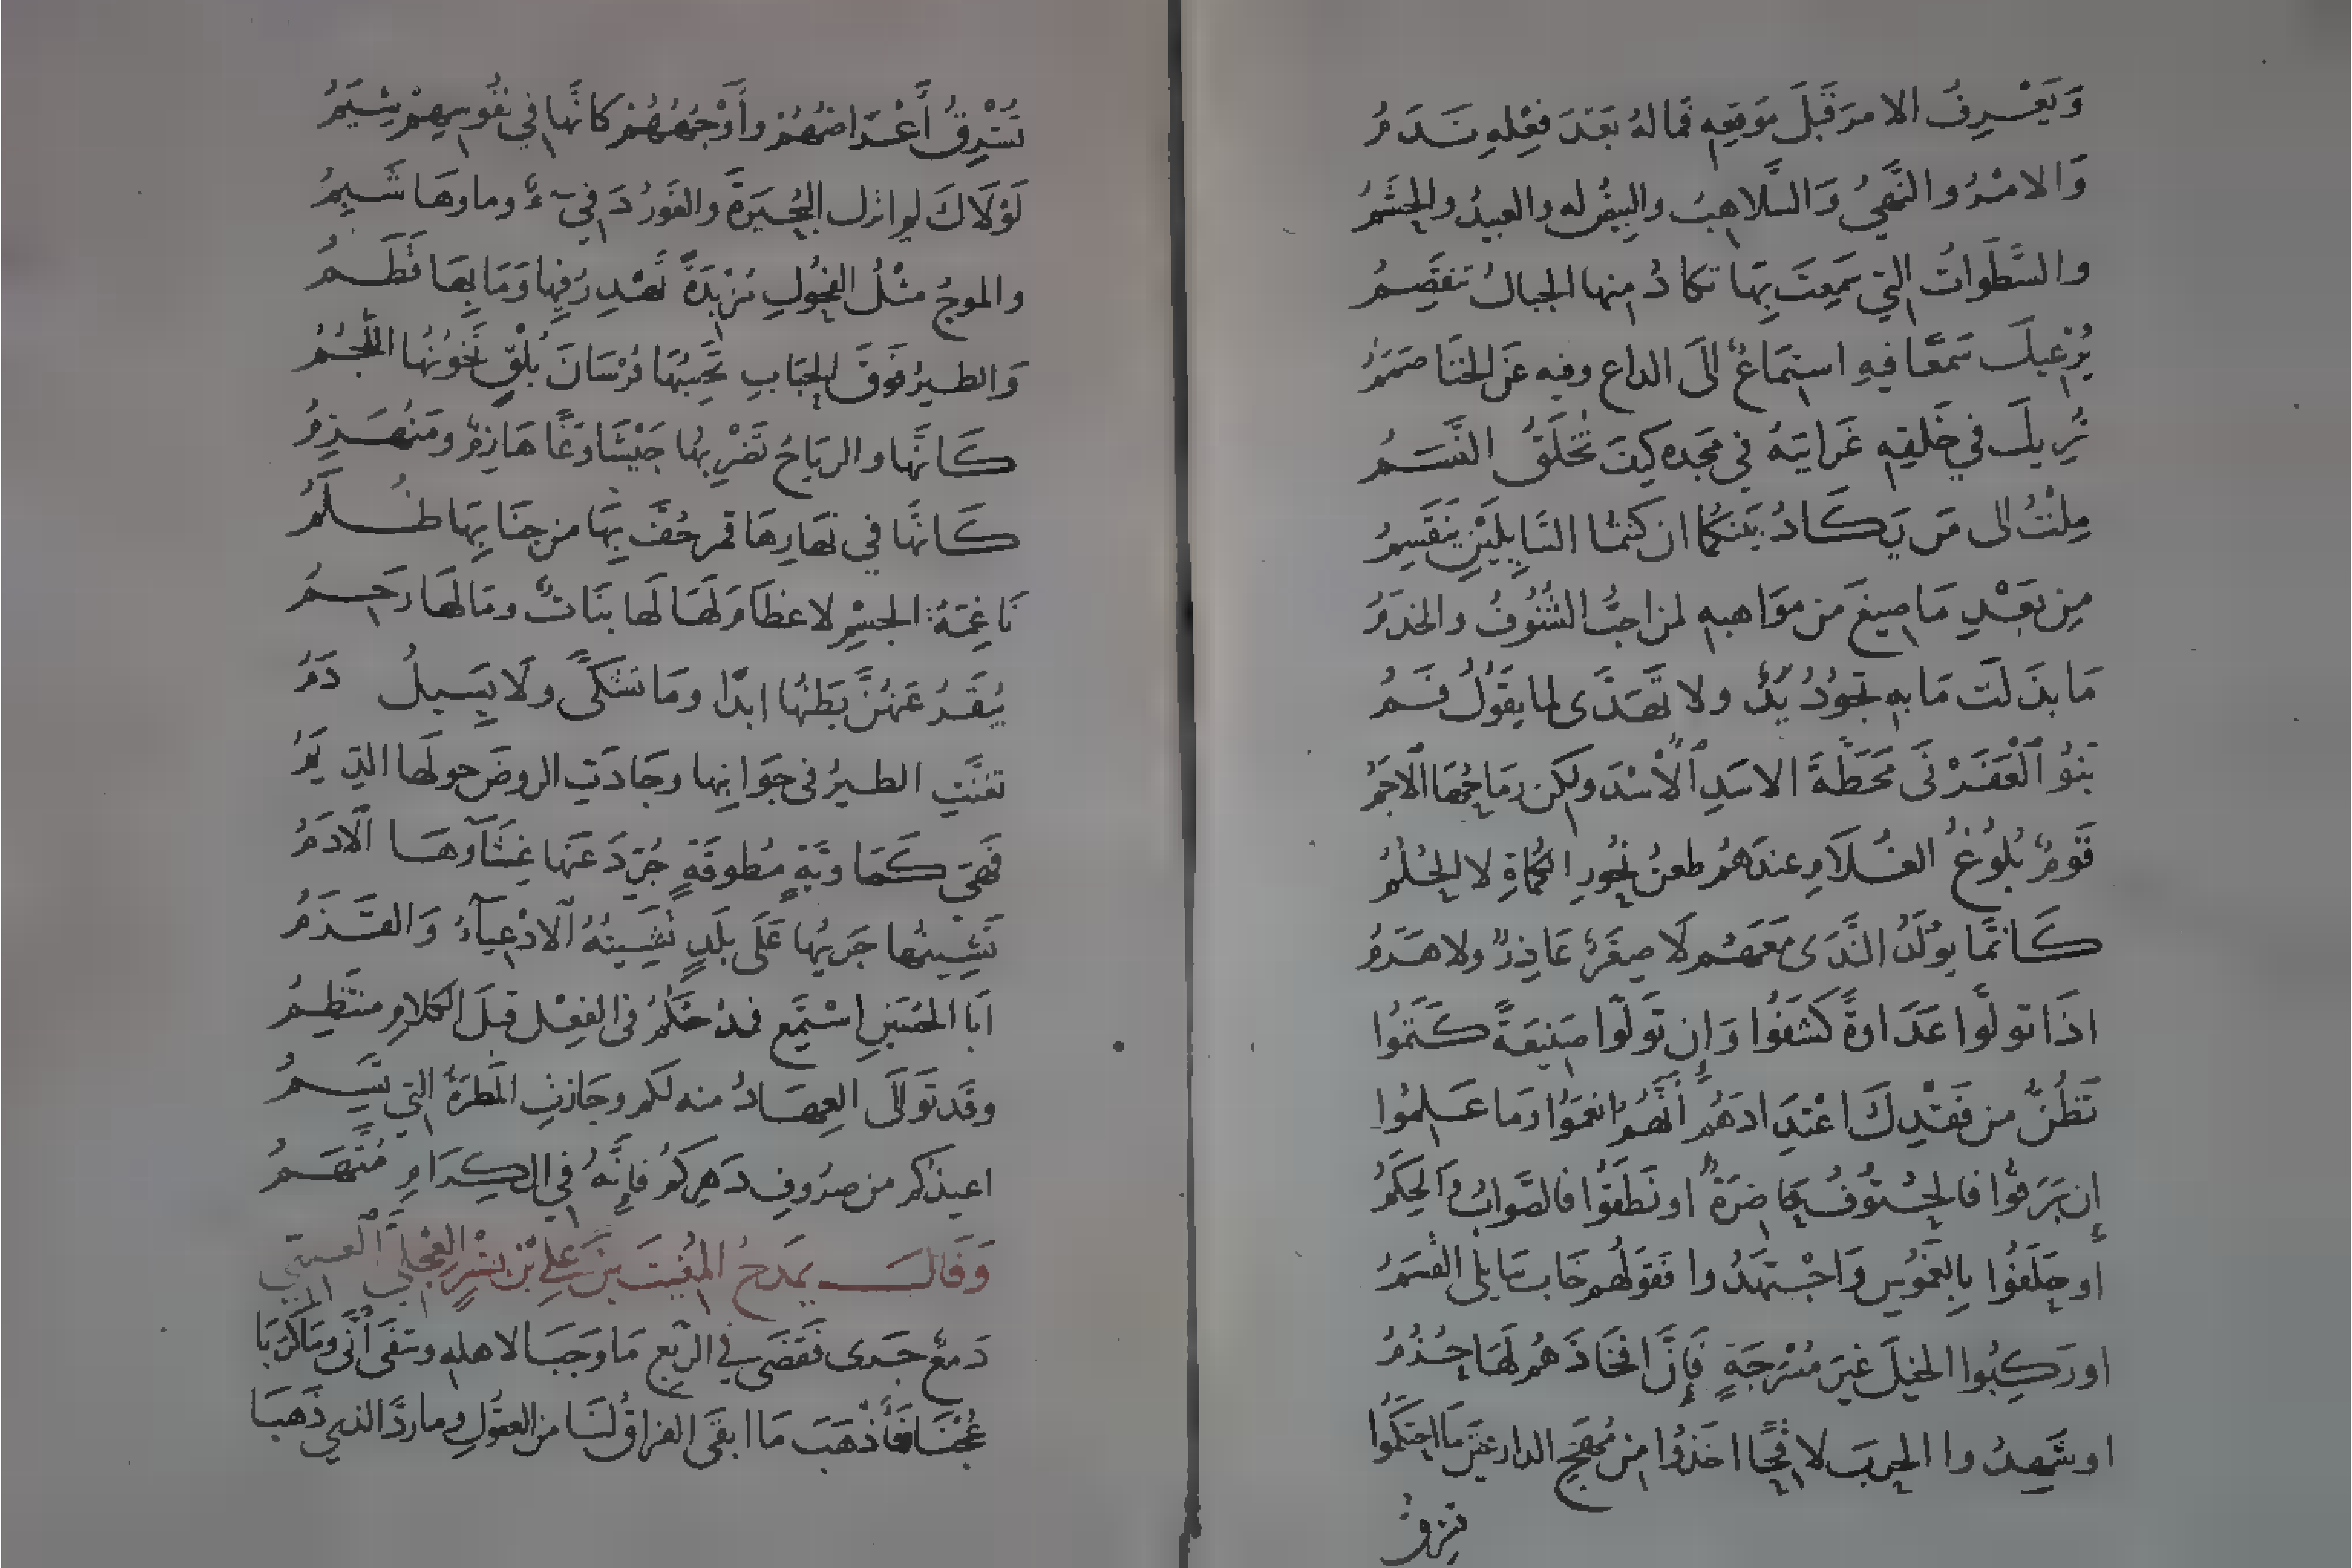 وَيَعْرِفُ الامرَ قَبلَ مَوقِعِهِ فَمَا لهُ بَعْدَ فِعْلِهِ نَدَمُ
وَالامْرُ والنَّهيُ وَالسَّلاهِبُ والبِيضُ له والعبيدُ والحَشَمُ
والسَّطَواتُ التي سَمِعتَ بِهَا تكادُ منها الجبالُ تنقَصِمُ
يُرْعِيكَ سَمْعًا فيهِ استِمَاعٌ الَى الداعِ وفيه عَنِ الخَنَا صَمَمُ
يُرِيكَ في خَلقِهِ غَرايبَهُ في مَجدِه كيفَ تُخْلَقُ النَّسَمُ
مِلْتُ الى مَن يَكَادُ بَينَكُمَا ان كنتُما السَّايِلَيْنِ يَنْقَسِمُ
مِن بَعْدِ مَا صِيغَ مَن مَوَاهبهِ لمن احبُّ الشُّنُوفُ والخدَمُ
مَا بذَلَت مَا بهِ يَجُودُ يَدٌ ولا تَهَدَّى لما يقُولُ فَمُ
بَنُو الْعَفَرْنَى مَحَطَّةَ الاسَدِ الأُسْدَ ولكن رمَاحُهَا الاجَمُ
قَومٌ بُلُوغُ الغُلامِ عندَهُم طعنُ نُحُورِ الكُمَاةِ لا الحُلُمُ
كَانَّمَا يُولَدُ النَّدَى مَعَهُم لَا صِغَرٌ عَاذِرٌ ولا هَرَمُ
اذَا تولَّوا عَدَاوةً كَشَفُوا وَإن تَوَلَّوا صَنِيعَةً كَتَمُوا
تَظُنُّ من فَقْدِكَ اعْتِدَادَهُم أنَّهُم انعَمُوا ومَا عَلِموُا
إن بَرَقُوا فالحُتُوفُ حَاضِرَةٌ او نَطَقوُا فالصَّوابُ والحِكَمُ
أو حلَفُوا بِالغَمُوسِ وَاجْتَهَدُوا فَقَولُهم خَابَ سَايلى القسَمُ
او ركِبُوا الخيلَ غيرَ مُسْرَجَةٍ فَإنَّ افخَاذَهُم لَهَا حُزُمُ
او شَهِدُوا الحربَ لاقِحًا اخَذُوا مِن مُهَجِ الدارعينَ مَا احتَكَموُا
تشرقُ
تُشْرِقُ أَعْرَاضُهُمْ وأَوْجُهُهُمْ كَانَّها في نفُوسِهِمْ شِيَمُ
لَوْلَاكَ لم اترك البُحَيرَةَ والغَورُ دَفيءٌ وماوهَا شَبِمُ
والموجُ مثْلُ الفُحُولِ مُزْبِدَةً تَهْدِرُ فيها وَمَا بِهَا قَطَمُ
وَالطيرُ فَوقَ الحَبَابِ تَحْسِبُهَا فُرْسَانَ بُلْقٍ تَخُونُهَا اللُّجُمُ
كَانَّها والرِيَاحُ تَضْرِبُها جَيْشَا وَغًا هَازِمٌ ومَنْهَزِمُ
كَانَّها في نهارِهَا قمر حُفَّ بِهَا من جنَابِهَا ظُلَمُ
نَاعِمَةُ الجسْمِ لا عظَامَ لَهَا لَها بَنَاتٌ ومَا لَهَا رَحِمُ
يُبقَرُ عَنهُنَّ بَطنُها ابدًا ومَا تَشَكَّى ولَا يَسِيلُ دَمُ
تغنَّتِ الطيرُ في جوَانِبِها وجَادَتِ الروضَ حولَها الدِيَمُ
فَهيَ كَمَاوِيّةٍ مُطَوقَةٍ جُرِّدَ عَنهَا غِشَآوهَا الادَمُ
يَشِينُها جَريُها عَلَى بلَدٍ تَشِينُهُ الادْعِيَآءُ وَالقَزَمُ
أبَا الحُسَينِ اسْتَمِع فمدْحُكُمُ في الفِعْل قبلَ الكلامِ منتَظِمُ
وقَد تَوَالَى العِهَادُ منه لكم وجَادَتِ المَطرَةُ التي تَسِمُ
اعيذكم من صرُوفِ دَهرِكُمُ فإنَّهُ في الكِرَامِ مُتَّهَمُ
وَقَالَ يمدَحُ المُغِيثَ بنَ عَلِيّ بْنِ بِشْرٍ العِجْليَّ
دَمعٌ جَرَى فَقَضَى في الرّبعِ مَا وَجَبَا لاهلِهِ وشفَى أنَّى ومَا كَرَبَا
عُجْنَا فَأَذْهَبَ مَا ابقَى الفِراقُ لنَا من العقُولِ وما ردَّ الذي ذَهبَا